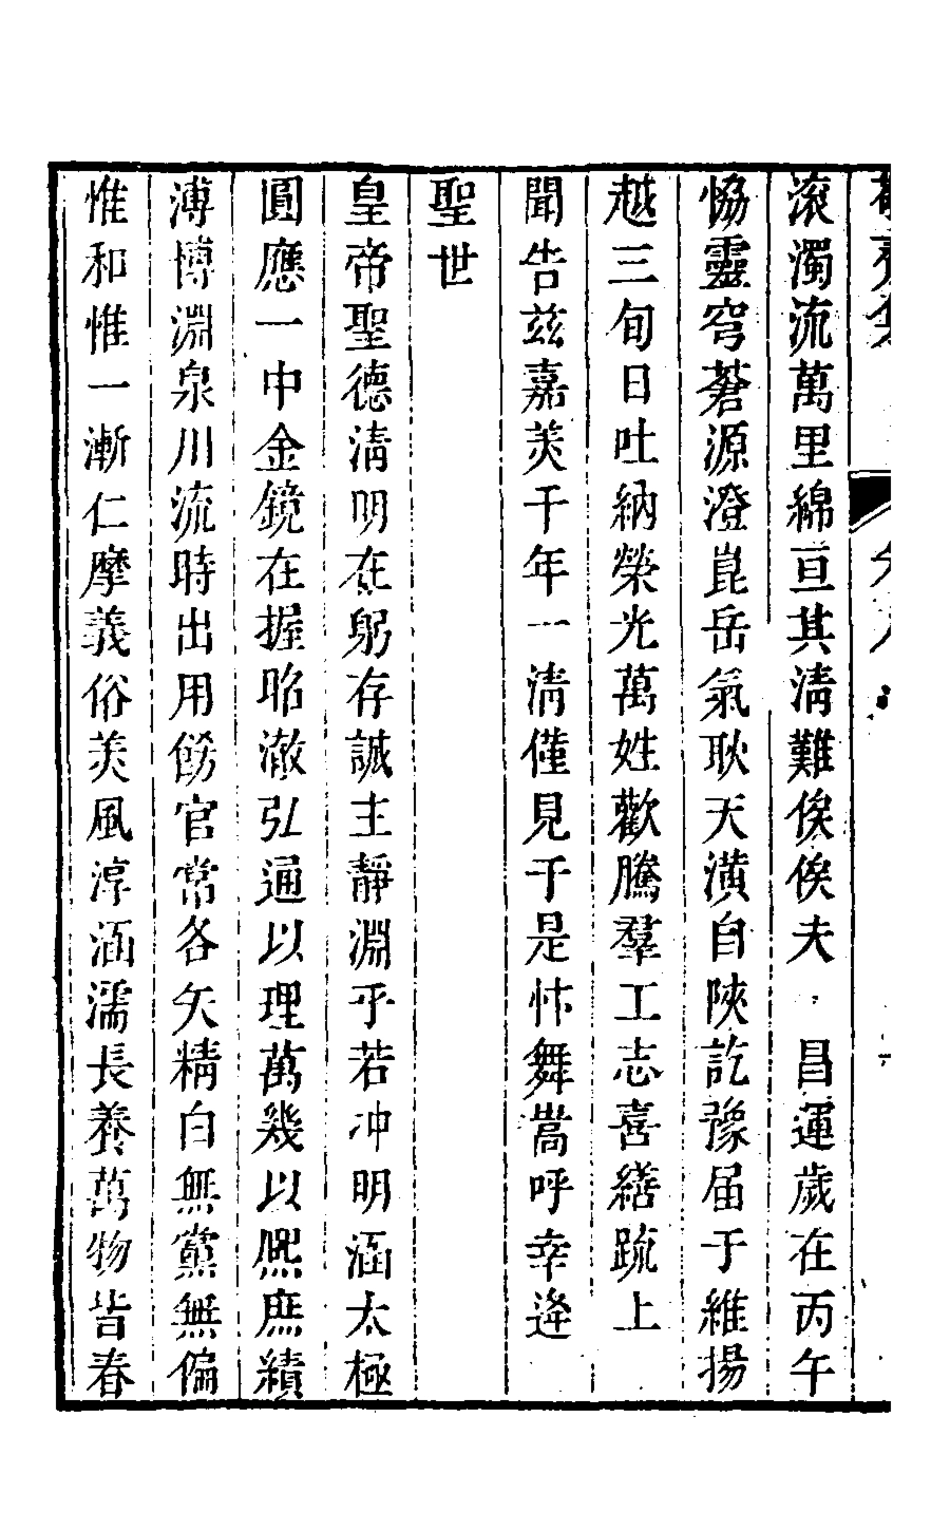 滚濁流萬里綿亘其清難俟俟夫 昌運歲在丙午
恊靈穹蒼源澄崑岳氣耿天潢自陝訖豫届于維揚
越三旬日吐納榮光萬姓歡騰羣工志喜繕疏上
聞告茲嘉美千年一清僅見于是忭舞嵩呼幸逢
聖世
皇帝聖德清明在躬存誠主靜淵乎若冲明涵太極
圓應一中金鏡在握昭澈弘通以理萬幾以熙庶績
溥博淵泉川流時出用飭官常各矢精白無黨無偏
惟和惟一漸仁摩義俗美風淳涵濡長養萬物皆春